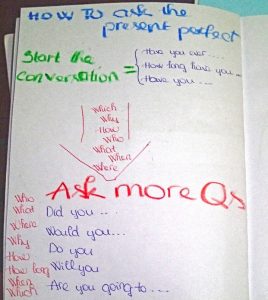 HOW TO ask the
present perfect
Start the
conversation =
Have you ever ....
How long have you ...
Have you ...
Which
Why
How
Who
What
When
Where
Ask more Qs
Who
What
Where
Why
How
How long
When
Which
Did you ...
Would you...
Do you
Will you
Are you going to ....